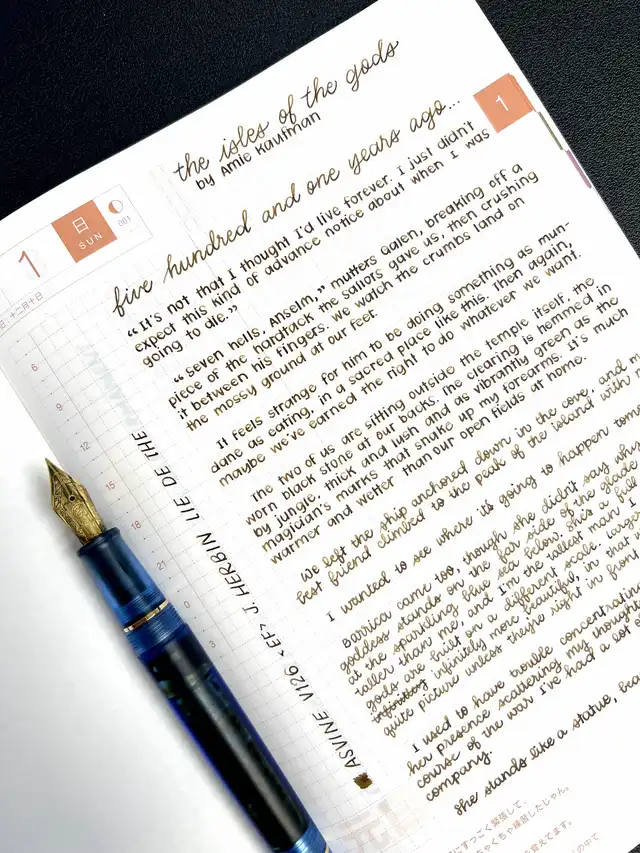 the isles of the gods
by Amie Kaufman
five hundred and one years ago...
1
1
日
SUN
001
十二月十日
"It's not that I thought I'd live forever. I just didn't
expect this kind of advance notice about when I was
going to die."
"Seven hells, Anselm," mutters Galen, breaking off a
piece of the hardtack the sailors gave us, then crushing
it between his fingers. We watch the crumbs land on
the mossy ground at our feet.
It feels strange for him to be doing something as mun-
dane as eating, in a sacred place like this. Then again,
maybe we've earned the right to do whatever we want.
The two of us are sitting outside the temple itself, the
worn black stone at our backs. The clearing is hemmed in
by jungle, thick and lush and as vibrantly green as the
magician's marks that snake up my forearms. It's much
warmer and wetter than our open fields at home.
We left the ship anchored down in the cove, and
best friend climbed to the peak of the island with
I wanted to see where it's going to happen
Barrica came too, though she didn't say why
goddess stands on the far side of the
at the sparkling blue sea below. She's a
taller than me, and I'm the tallest man
gods are built on a different scale.
infinitely more beautiful, in that
quite picture unless they're right in
I used to have trouble
her presence scattering my
course of the war I've had a lot
company.
She stands like a statue,
6
9
12
15
18
21
0
3
ASVINE V126 <EF> J. HERBIN LIE DE THE
にすっごく緊張して、
ちゃくちゃ練習したじゃん。
覚えてます。
の中で